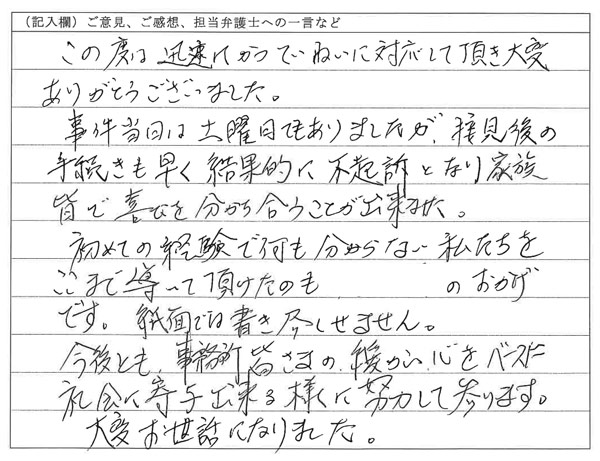 （記入欄）ご意見、ご感想、担当弁護士への一言など
この度は迅速にかつていねいに対応して頂き大変
ありがとうございました。
事件当日は土曜日でもありましたが、接見後の
手続きも早く結果的に不起訴となり家族
皆で喜びを分かち合うことが出来ました。
初めての経験で何も分からない私たちを
ここまで導いて頂けたのも のおかげ
です。紙面では書き尽しせません。
今後とも、事務所皆さまの暖かい心をベースに
社会に寄与出来る様に努力して参ります。
大変お世話になりました。